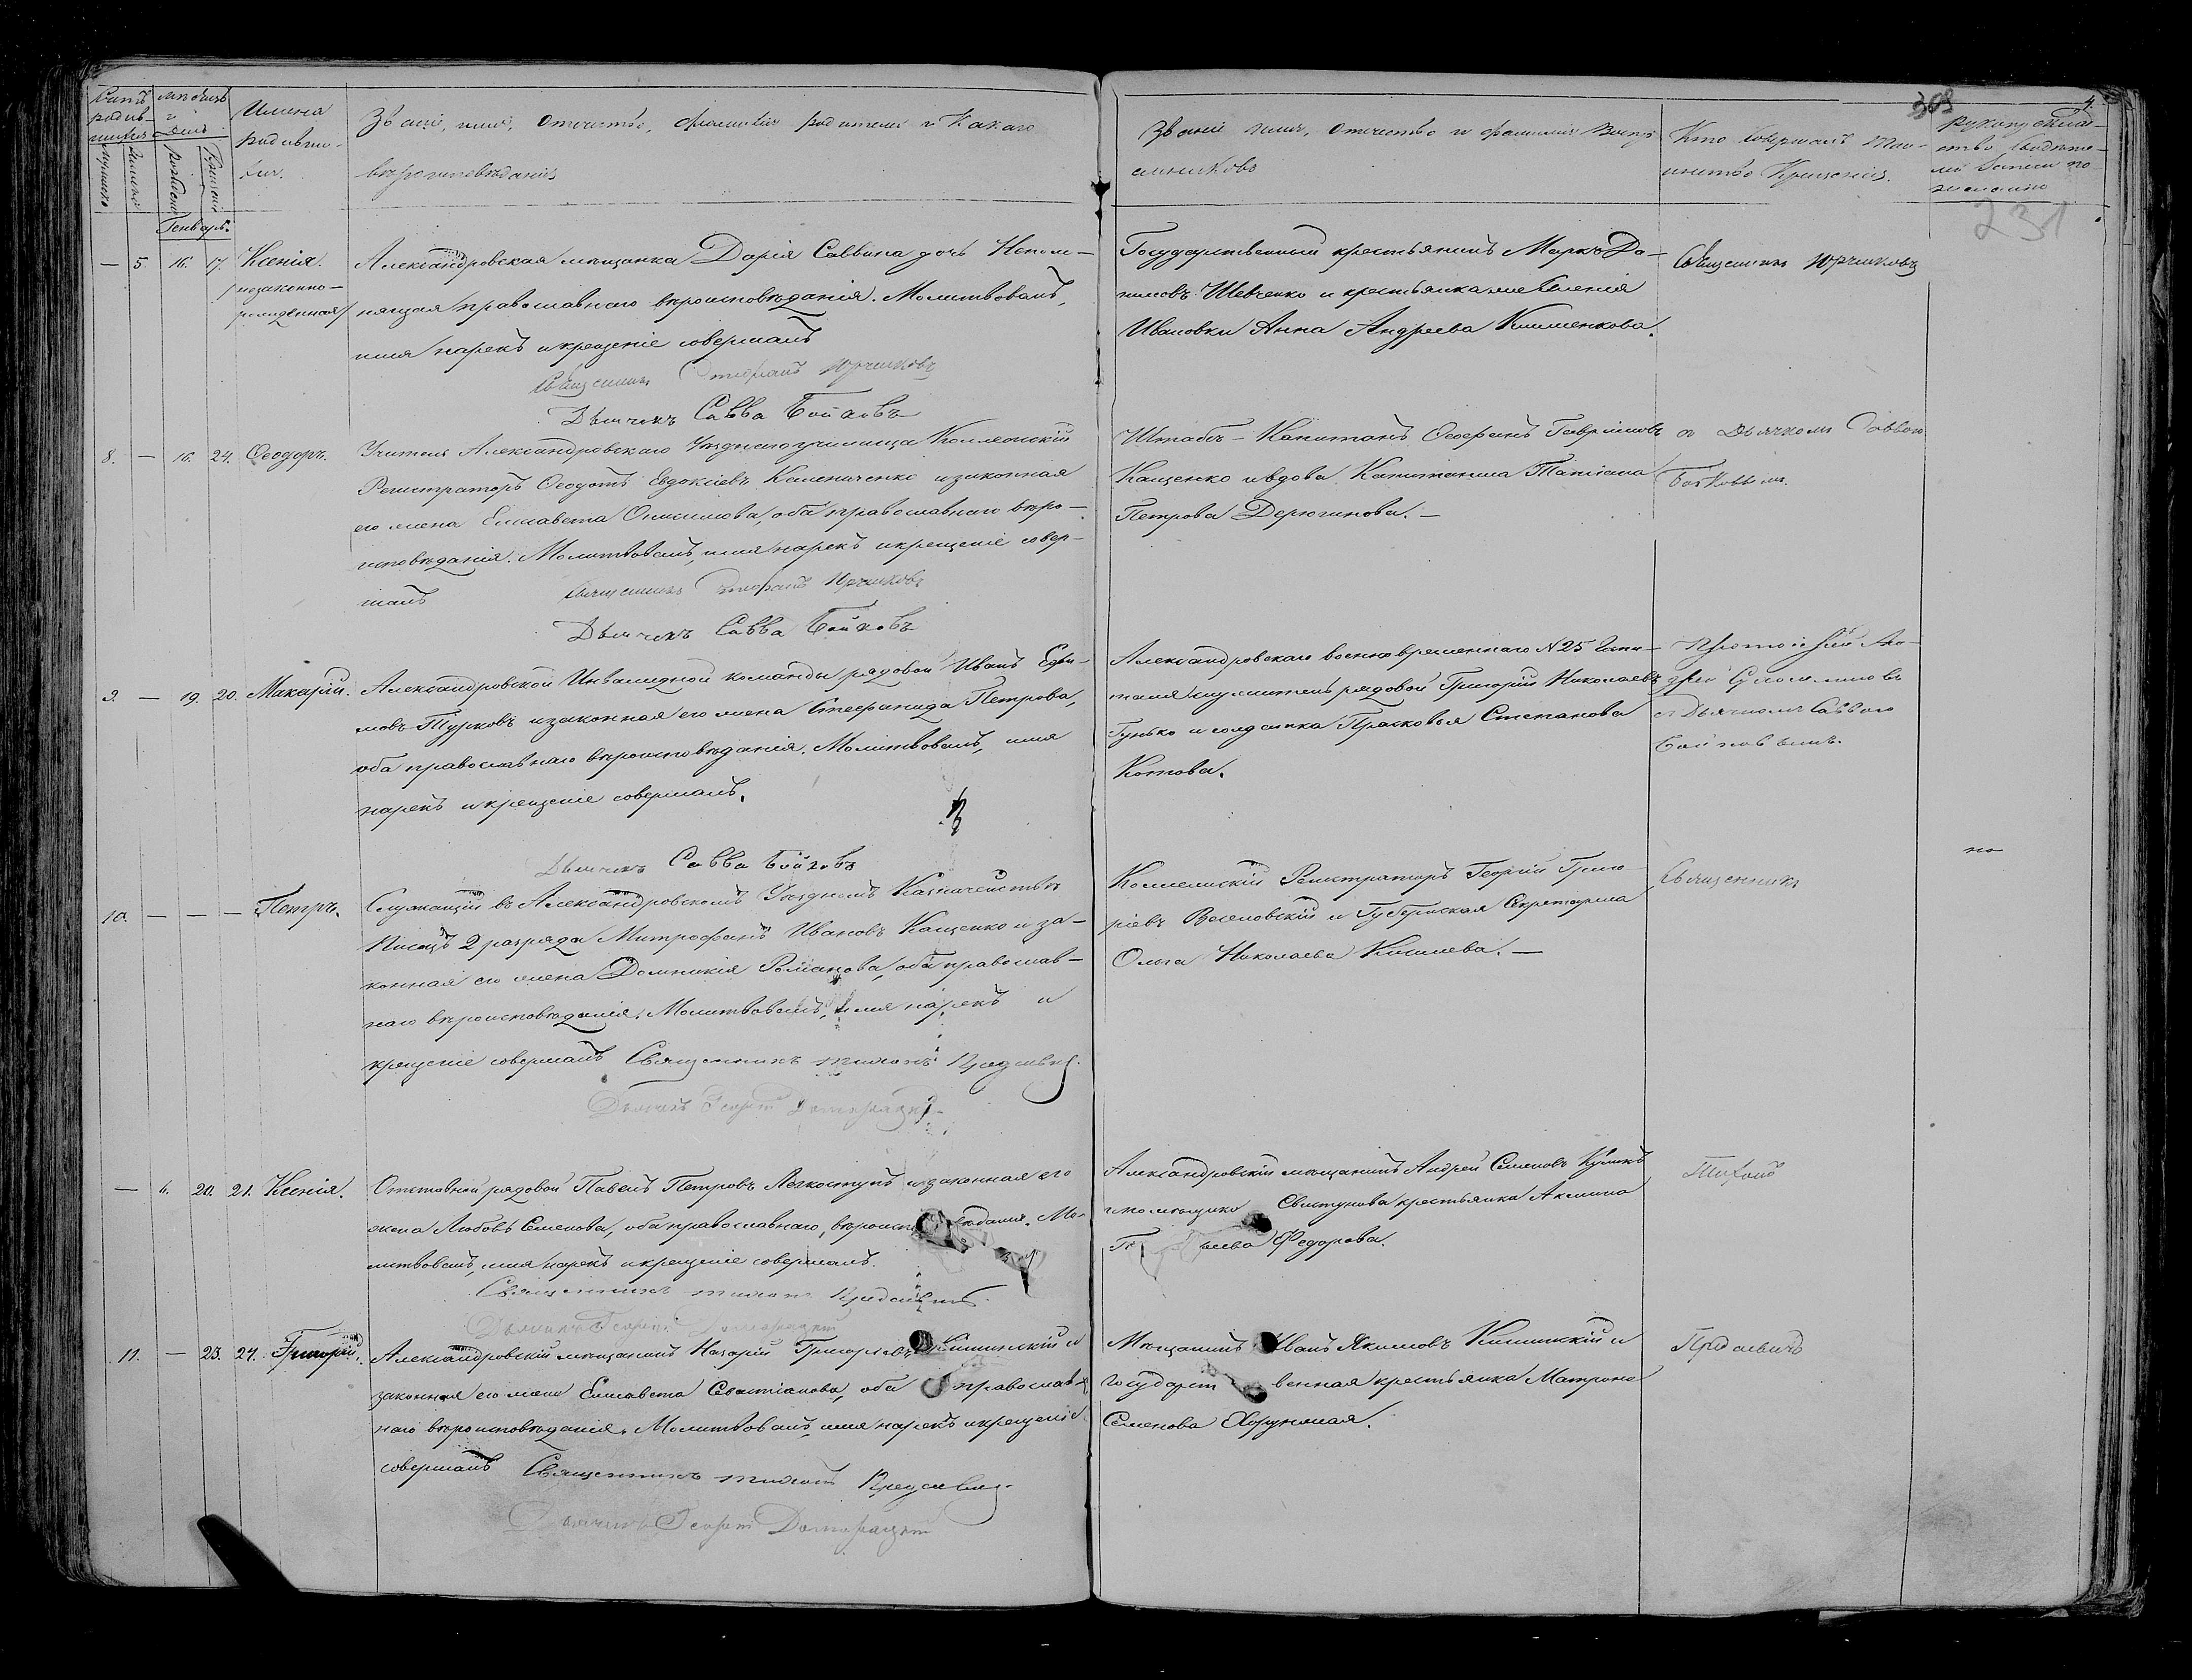 Счетъ родив-шихся
мѣсяцъ и день
Имена родивших-ся.
Званіе, имя, отчество, фамилія родителей и какого
вѣроисповѣданія
Званіе, имя, отчество и фамилія воспрі-
емниковъ
Кто совершалъ Таи-
инство Крещенія.
Рукоприклад-
ство свидѣте-
лей записи по
желанію
309
4.
231
Генварь.
— 5. 16. 17. Ксенія.
незаконно-
рожденная
Александровская мѣщанка Дарія Саввина дочь Непом-
нящая православнаго вѣроисповѣданія. Молитвовалъ,
имя нарекъ и крещеніе совершалъ
Священникъ Стефанъ Юрчиковъ
Дьячекъ Савва Бойковъ
Государственный крестьянинъ Маркъ Да-
ниловъ Шевченко и крестьянка имѣнія
Ивановки Анна Андреева Клименкова.
Священникъ Юрчиковъ
8. — 16. 24. Ѳеодоръ.
Учитель Александровскаго Уѣзднаго училища Коллежскій
Регистраторъ Ѳеодотъ Евдокіевъ Калениченко и законная
его жена Елисавета Онисимова, оба православнаго вѣро-
исповѣданія. Молитвовалъ, имя нарекъ и крещеніе совер-
шалъ
Священникъ Стефанъ Юрчиковъ
Дьячекъ Савва Бойковъ
Штабсъ-Капитанъ Ѳеофанъ Гавриловъ
Кащенко и вдова Капитанша Татіана
Петрова Дерюгинова. —
съ Дьячкомъ Саввою
Бойковымъ.
9. — 19. 20. Макарій.
Александровской Инвалидной команды рядовой Иванъ Ефи-
мовъ Турковъ и законная его жена Стефанида Петрова,
оба православнаго вѣроисповѣданія. Молитвовалъ, имя
нарекъ и крещеніе совершалъ.
Дьячекъ Савва Бойковъ
Александровскаго военно временнаго N 25 Госпи-
таля служитель рядовой Григорій Николаевъ
Гунько и солдатка Прасковья Степанова
Котова.
Протоіерей
съ Дьячкомъ Саввою
Бойковымъ.
10. — — — Петръ.
Служащій въ Александровскомъ Уѣздномъ Казначействѣ
Писецъ 2 разряда Митрофанъ Ивановъ Кащенко и за-
конная его жена Домникія Романова, оба православ-
наго вѣроисповѣданія. Молитвовалъ, имя нарекъ и
крещеніе совершалъ Священникъ Тихонъ
Коллежскій Регистраторъ Георгій Григо-
ріевъ Веселовскій и Губернская Секретарша
Ольга Николаева Киселева. —
Священникъ
по
— 6. 20. 21. Ксенія.
Отставной рядовой Павелъ Петровъ Легкоступъ и законная его
жена Любовь Семенова, оба православнаго, вѣроисповѣданія. Мо-
литвовалъ, имя нарекъ и крещеніе совершалъ.
Священникъ Тихонъ
Александровскій мѣщанинъ Андрей Семеновъ
и помѣщика Свистунова крестьянка Аксинія
Федорова.
Тихонъ
11. — 23. 24. Григорій.
Александровскій мѣщанинъ Назарій Григорьевъ Кишинскій и
законная его жена Елисавета Севастіанова, оба православ-
наго вѣроисповѣданія. Молитвовалъ, имя нарекъ и крещеніе
совершалъ Священникъ Тихонъ
Мѣщанинъ Иванъ Якимовъ Кишинскій и
государственная крестьянка Матрона
Семенова Хорунжая.